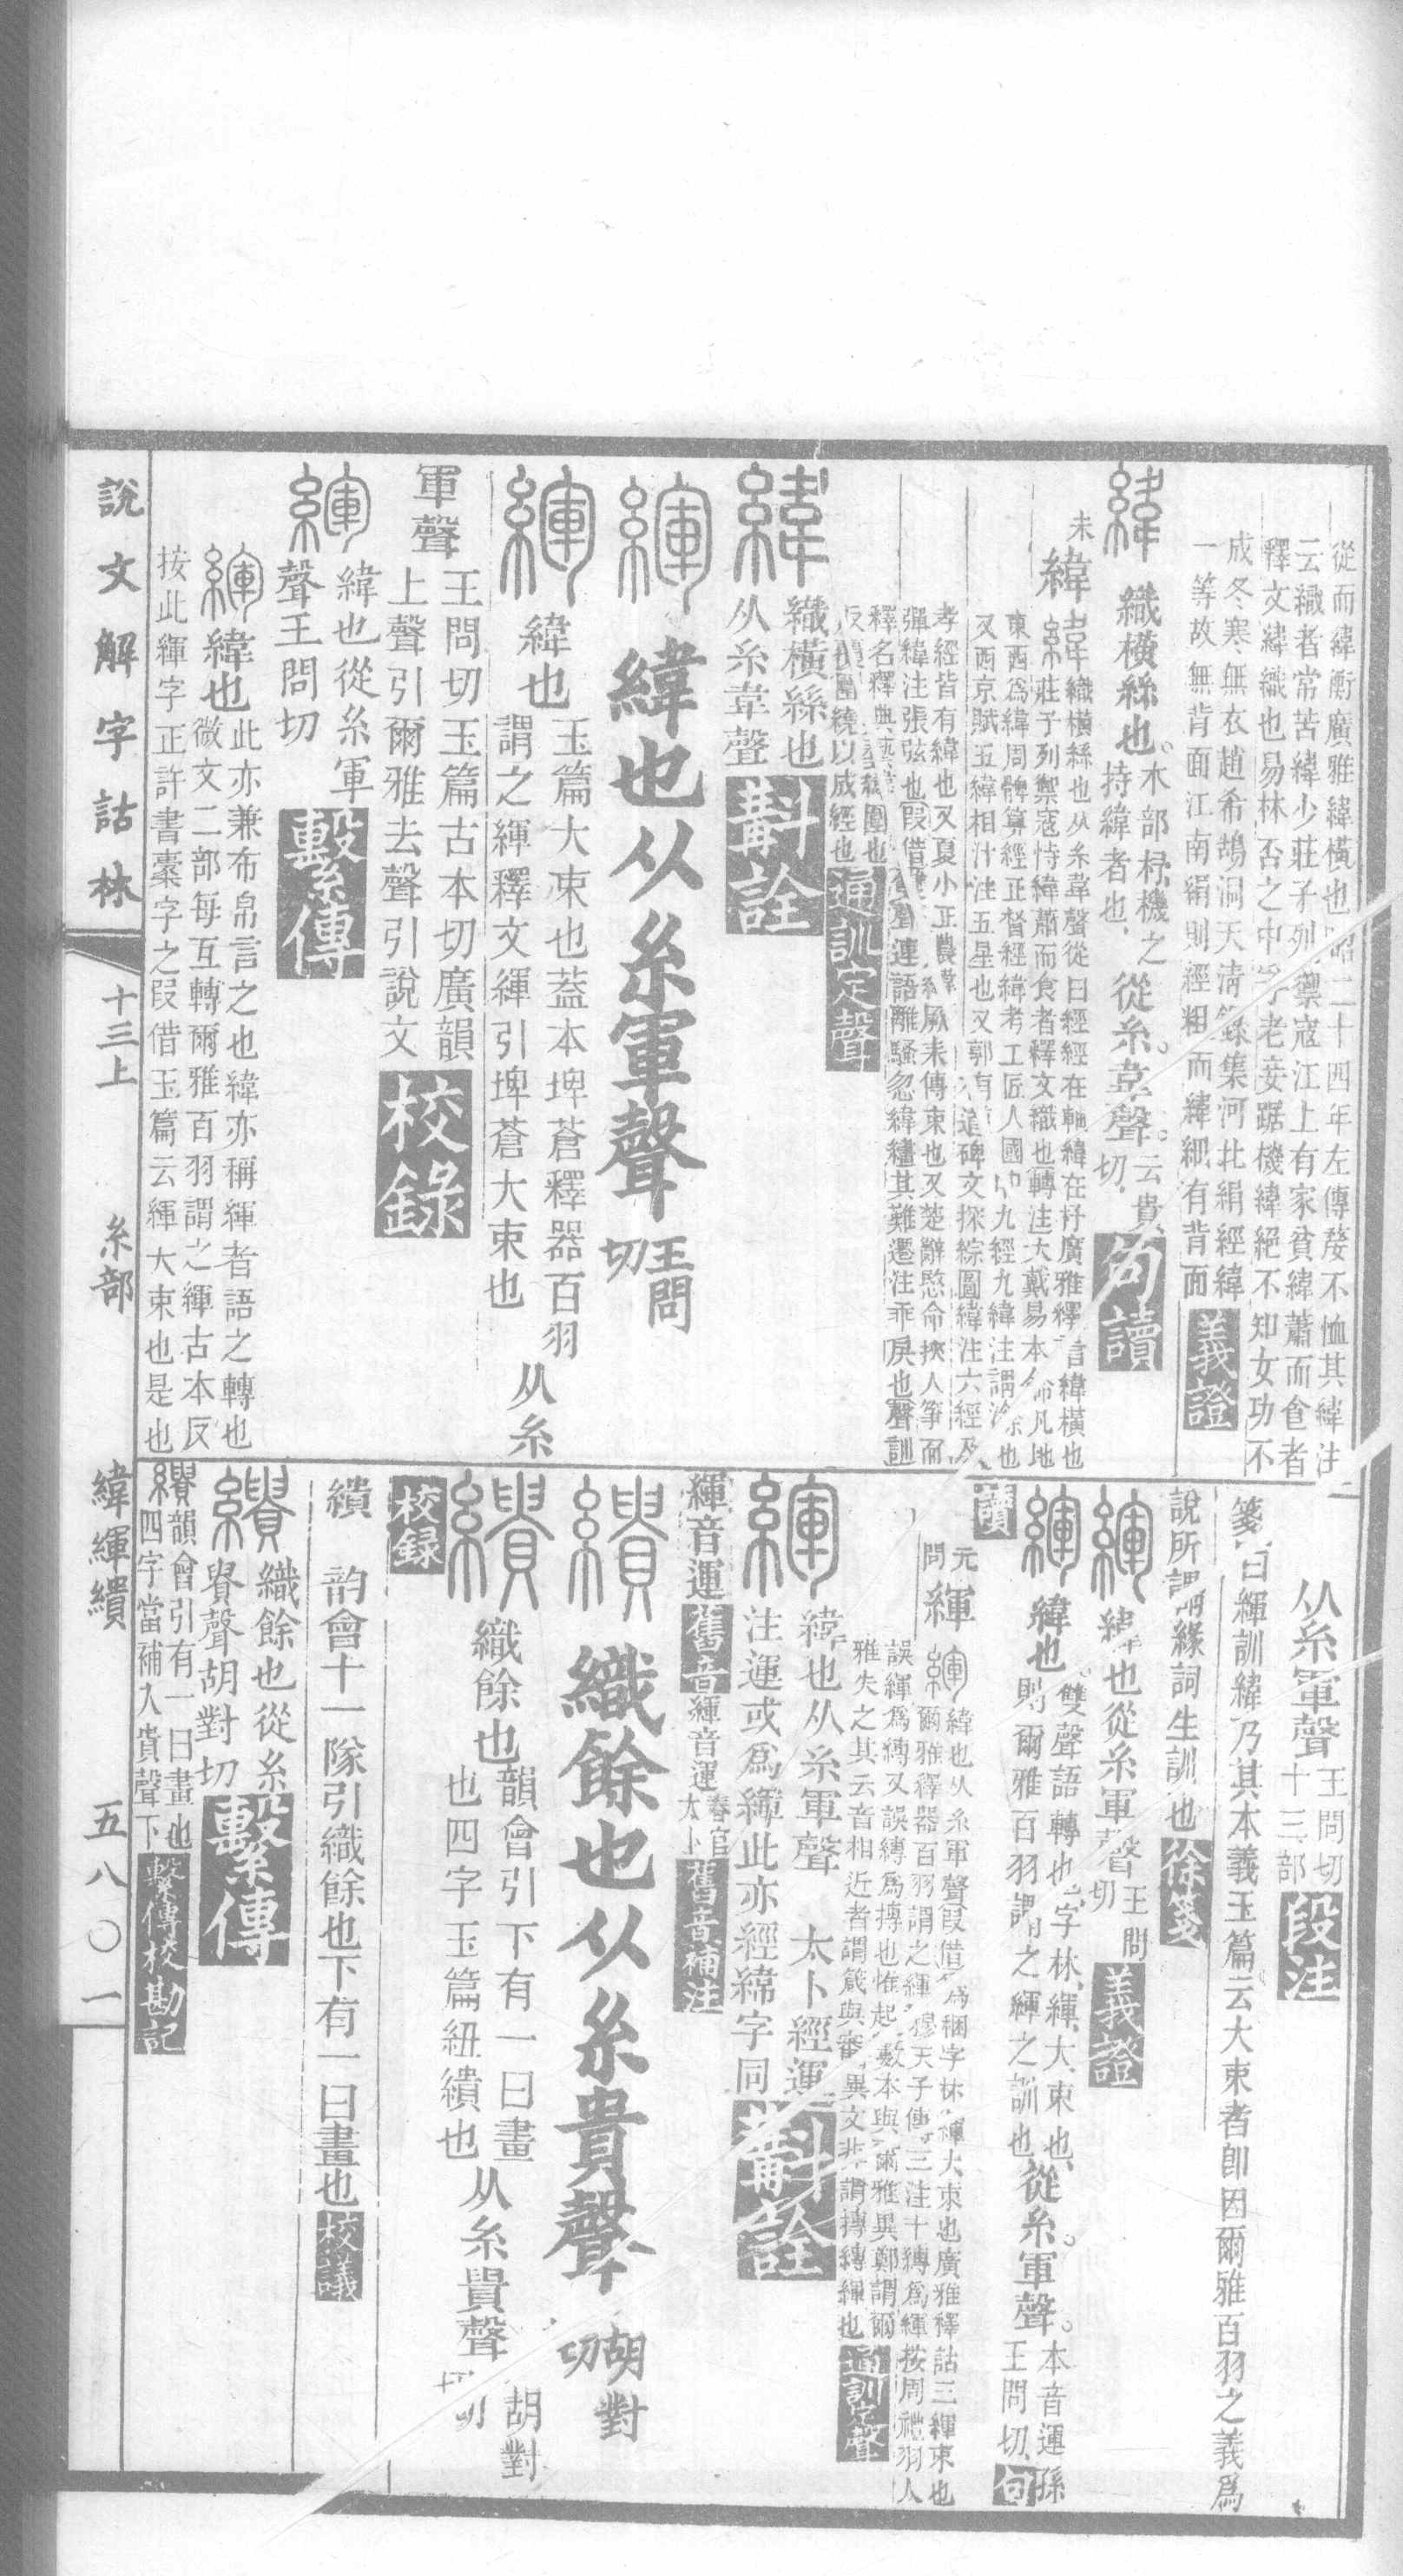 從而緯衡廣雅緯橫也昭二十四年左傳嫠不恤其緯注
云織者常苦緯少莊子列禦寇江上有家貧緯蕭而食者
釋文緯織也易林否之中孚老妾踞機緯絕不知女功不
成冬寒無衣趙希鵠洞天清錄集河北絹經緯
一等故無背面江南絹則經粗而緯細有背面 義證
緯 織橫絲也。木部杼機之持緯者也 從糸。韋聲。云貴切 句讀
未 緯 織橫絲也从糸韋聲從曰經經在軸緯在杼廣雅釋言緯橫也
莊子列禦寇恃緯蕭而食者釋文織也轉注大戴易本命凡地
東西爲緯周髀算經正督經緯考工匠人國中九經九緯注謂涂也
又西京賦五緯相汁注五星也又郭有道碑文探綜圖緯注六經及
孝經皆有緯也又夏小正農緯厥耒傳束也又楚辭愍命挾人箏而
彈緯注張弦也假借連語離騷忽緯繣其難遷注乖戾也聲訓
釋名釋典藝緯圍也
反覆圍繞以成經也 通訓定聲
緯 織橫絲也
从糸韋聲 斠詮
緷 緯也从糸軍聲 王問切
緷 緯也 玉篇大束也蓋本埤蒼釋器百羽
謂之緷釋文緷引埤蒼大束也 从糸
軍聲 王問切玉篇古本切廣韻
上聲引爾雅去聲引說文 校錄
緷 緯也從糸軍
聲王問切 繫傳
緷 緯也 此亦兼布帛言之也緯亦稱緷者語之轉也
微文二部每互轉爾雅百羽謂之緷古本反
按此緷字正許書橐字之叚借玉篇云緷大束也是也
从糸軍聲 王問切十三部 段注
箋曰緷訓緯乃其本義玉篇云大束者卽因爾雅百羽之義爲
說所謂緣詞生訓也 徐箋
緷 緯也從糸軍聲 王問切 義證
緷 緯也。雙聲語轉也字林緷大束也
則爾雅百羽謂之緷之訓也 從糸。軍聲。本音運孫
王問切 句
讀
元問 緷 緯也从糸軍聲叚借爲稇字林緷大束也廣雅釋詁三緷束也
爾雅釋器百羽謂之緷穆天子傳三注十縳爲緷按周禮羽人
誤緷爲縳又誤縳爲摶也惟起數本與爾雅異鄭謂爾
雅失之其云音相近者謂箴與審異文非謂摶縳緷也 通訓定聲
緷 緯也从糸軍聲 太卜經運
注運或爲緷此亦經緯字同 斠詮
緷音運 舊音 緷音運 春官大卜 舊音補注
繢 織餘也从糸貴聲 胡對切
繢 織餘也 韻會引下有一曰畫
也四字玉篇紐繢也 从糸貴聲 胡對切
校錄
繢 韵會十一隊引織餘也下有一曰畫也 校議
繢 織餘也從糸
貴聲胡對切 繫傳
繢 韻會引有一曰畫也
四字當補入貴聲下 繫傳校勘記
說文解字詁林 十三上 糸部 緯緷繢 五八〇一